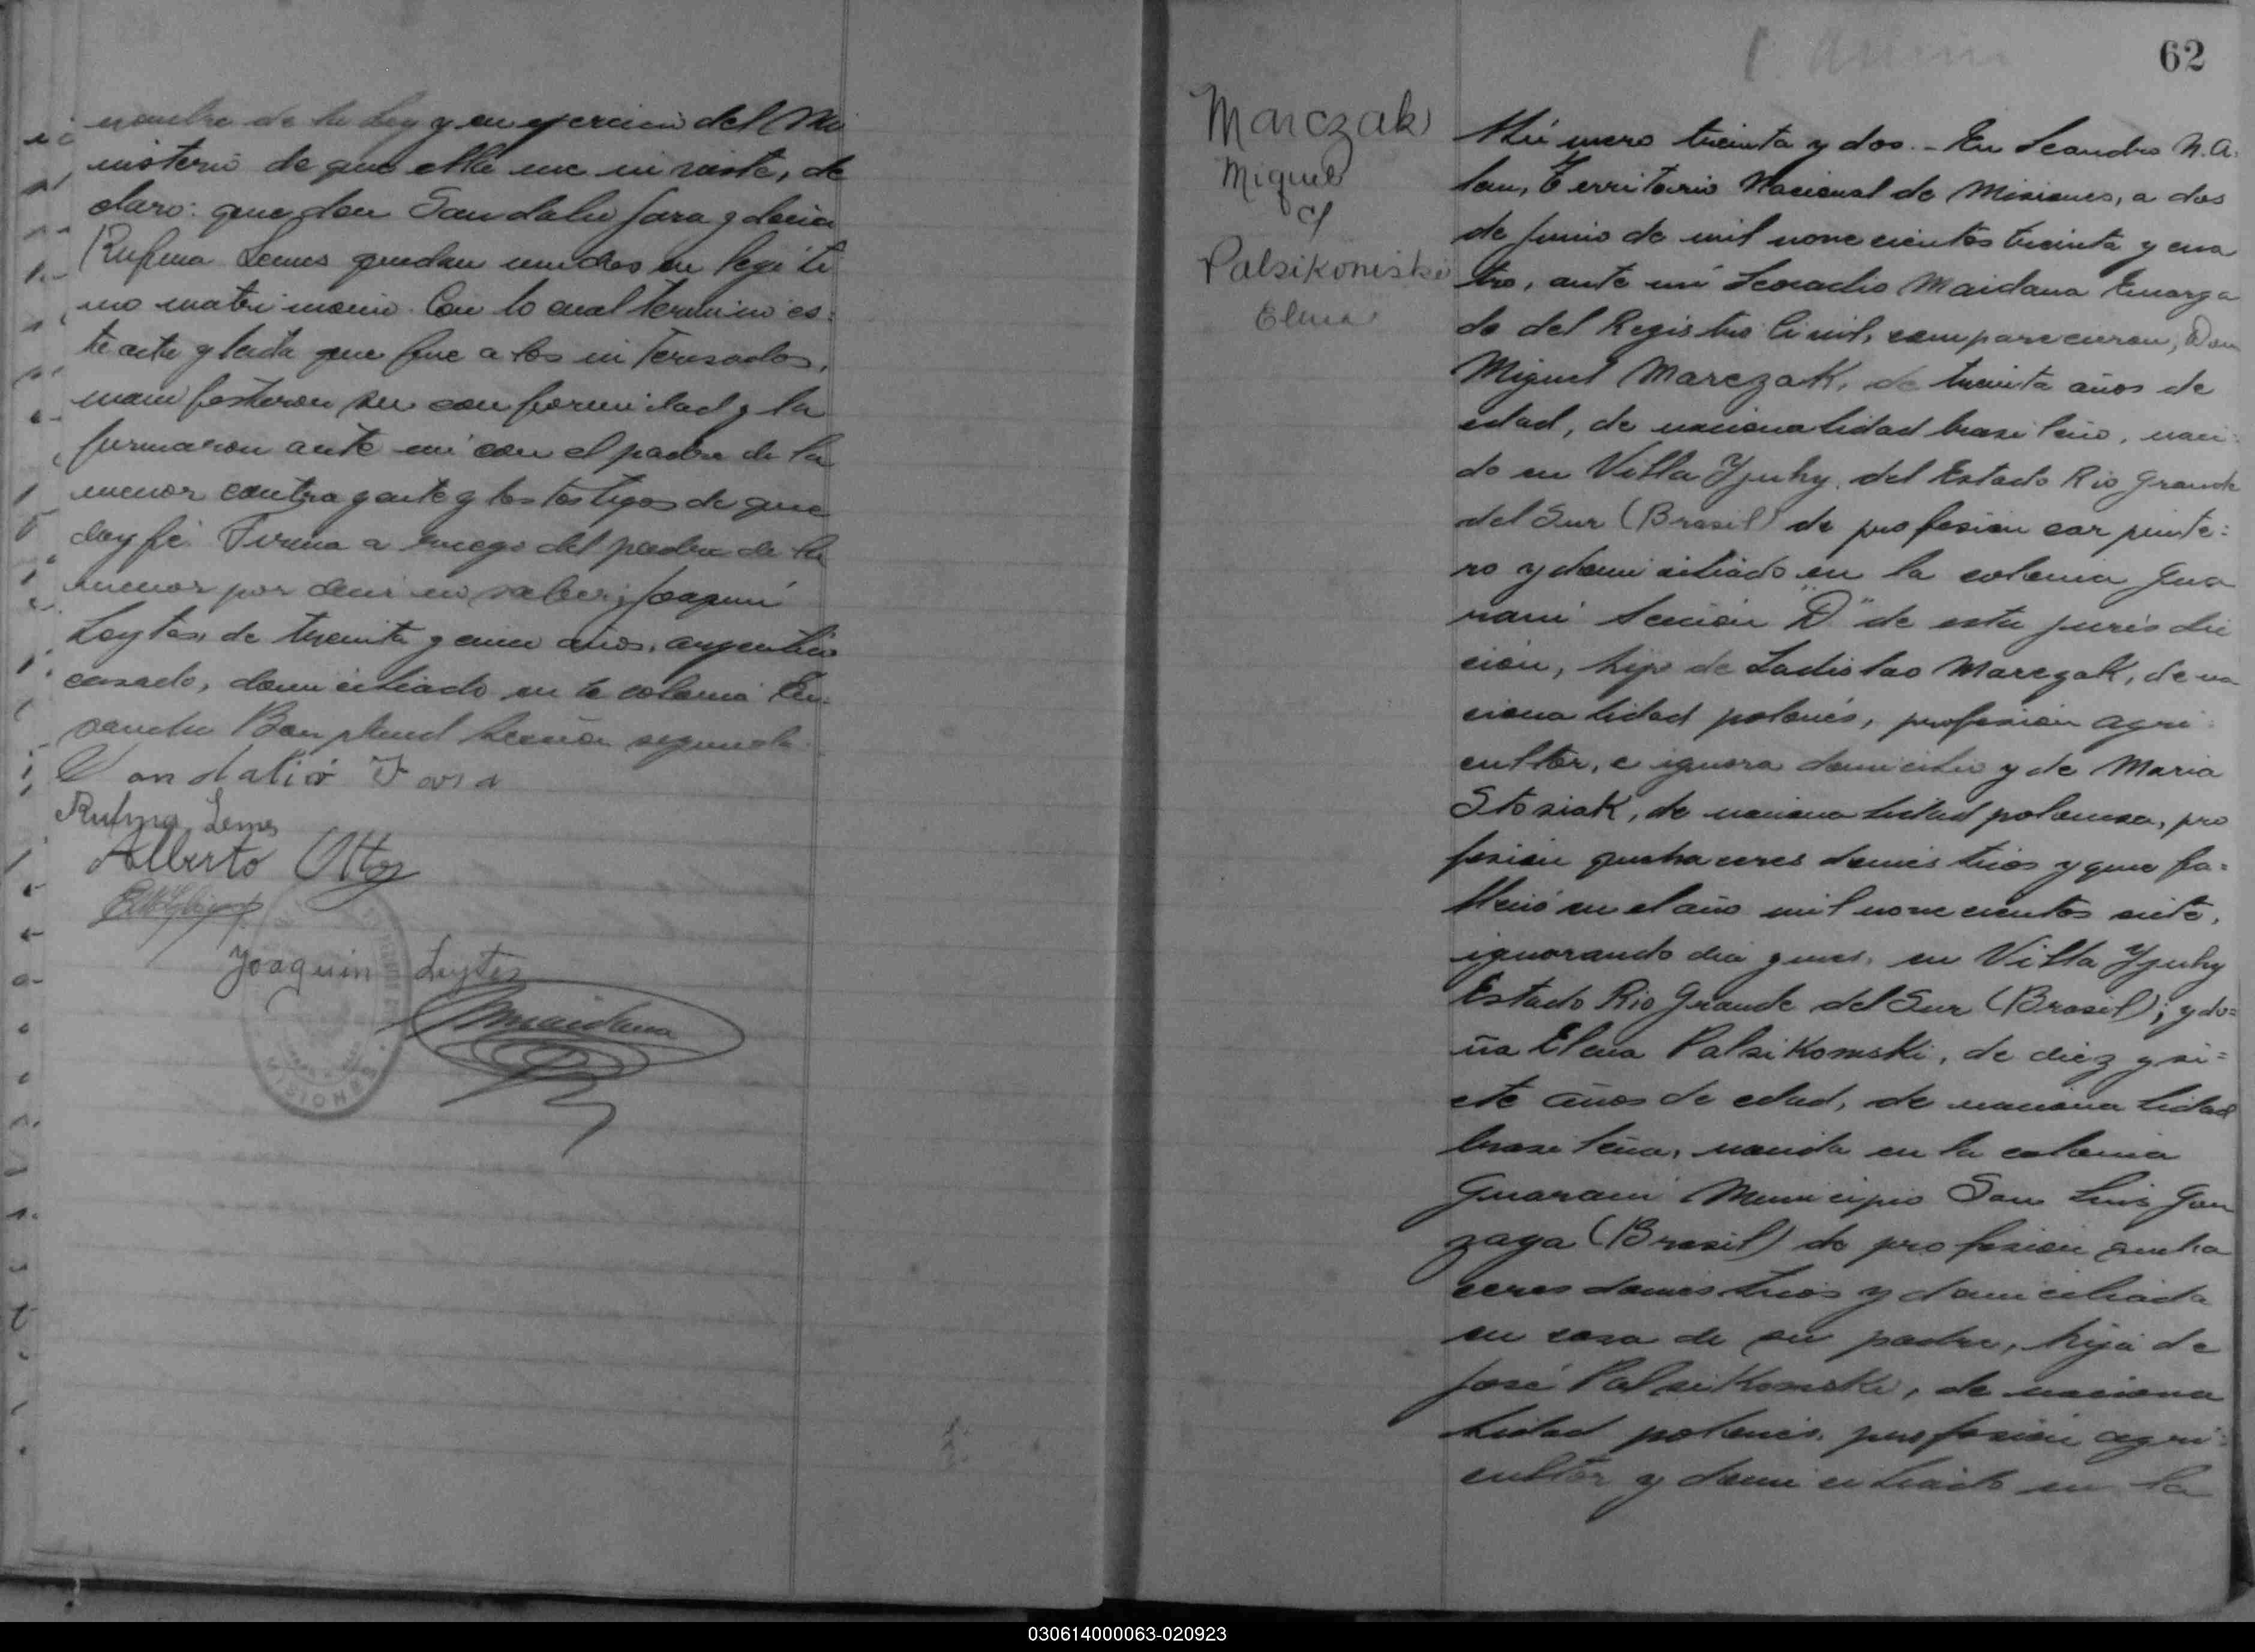 nombre de la Ley y en ejercicio del Mi
nisterio de que ella me inviste, de
claro: que don Sandalio Jara y doña
Rufina Lemes quedan unidos en legiti
mo matrimonio. Con lo cual terminó es:
te acta y leida que fue a los interesados,
manifestaron su conformidad y la
firmaron ante mi con el padre de la
menor contrayente y los testigos de que
doy fé. Firma a ruego del padre de la
menor por decir no saber; Joaquin
Leytes, de treinta y cinco años, argentino
casado, domiciliado en la colonia En-
sanche Bonpland Sección segunda.
Sandalio Jara
Rufina Lemes
Alberto
Joaquin Leytes
Maidana
MISIONES
62
Marczak
Miguel
c/
Palsikoniski
Elena
Número treinta y dos.- En Leandro N. A:
lem, Territorio Nacional de Misiones, a dos
de Junio de mil novecientos treinta y cua
tro, ante mi Leocadio Maidana Encarga
do del Registro Civil, comparecieron, Don
Miguel Marczak, de treinta años de
edad, de nacionalidad brasileño, naci:
do en Villa Yjuhy, del Estado Rio Grande
del Sur (Brasil) de profesión carpinte:
ro y domiciliado en la colonia Gua
rani Sección "D" de esta jurisdic
ción, hijo de Ladislao Marczak, de na
cionalidad polonés, profesión agri
cultor, e ignora domicilio y de Maria
Stosiak, de nacionalidad polonesa, pro
fesión quehaceres domésticos y que fa=
lleció en el año mil novecientos siete,
ignorando dia y mes, en Villa Yjuhy
Estado Rio Grande del Sur (Brasil); y do=
ña Elena Palsikomski, de diez y si=
ete años de edad, de nacionalidad
brasileña, nacida en la colonia
Guarani Municipio San Luis Gon
zaga (Brasil) de profesión queha
ceres domésticos y domiciliada
en casa de su padre, hija de
José Palsikomski, de naciona
lidad polonés, profesión agri:
cultor y domiciliado en la
030614000063-020923